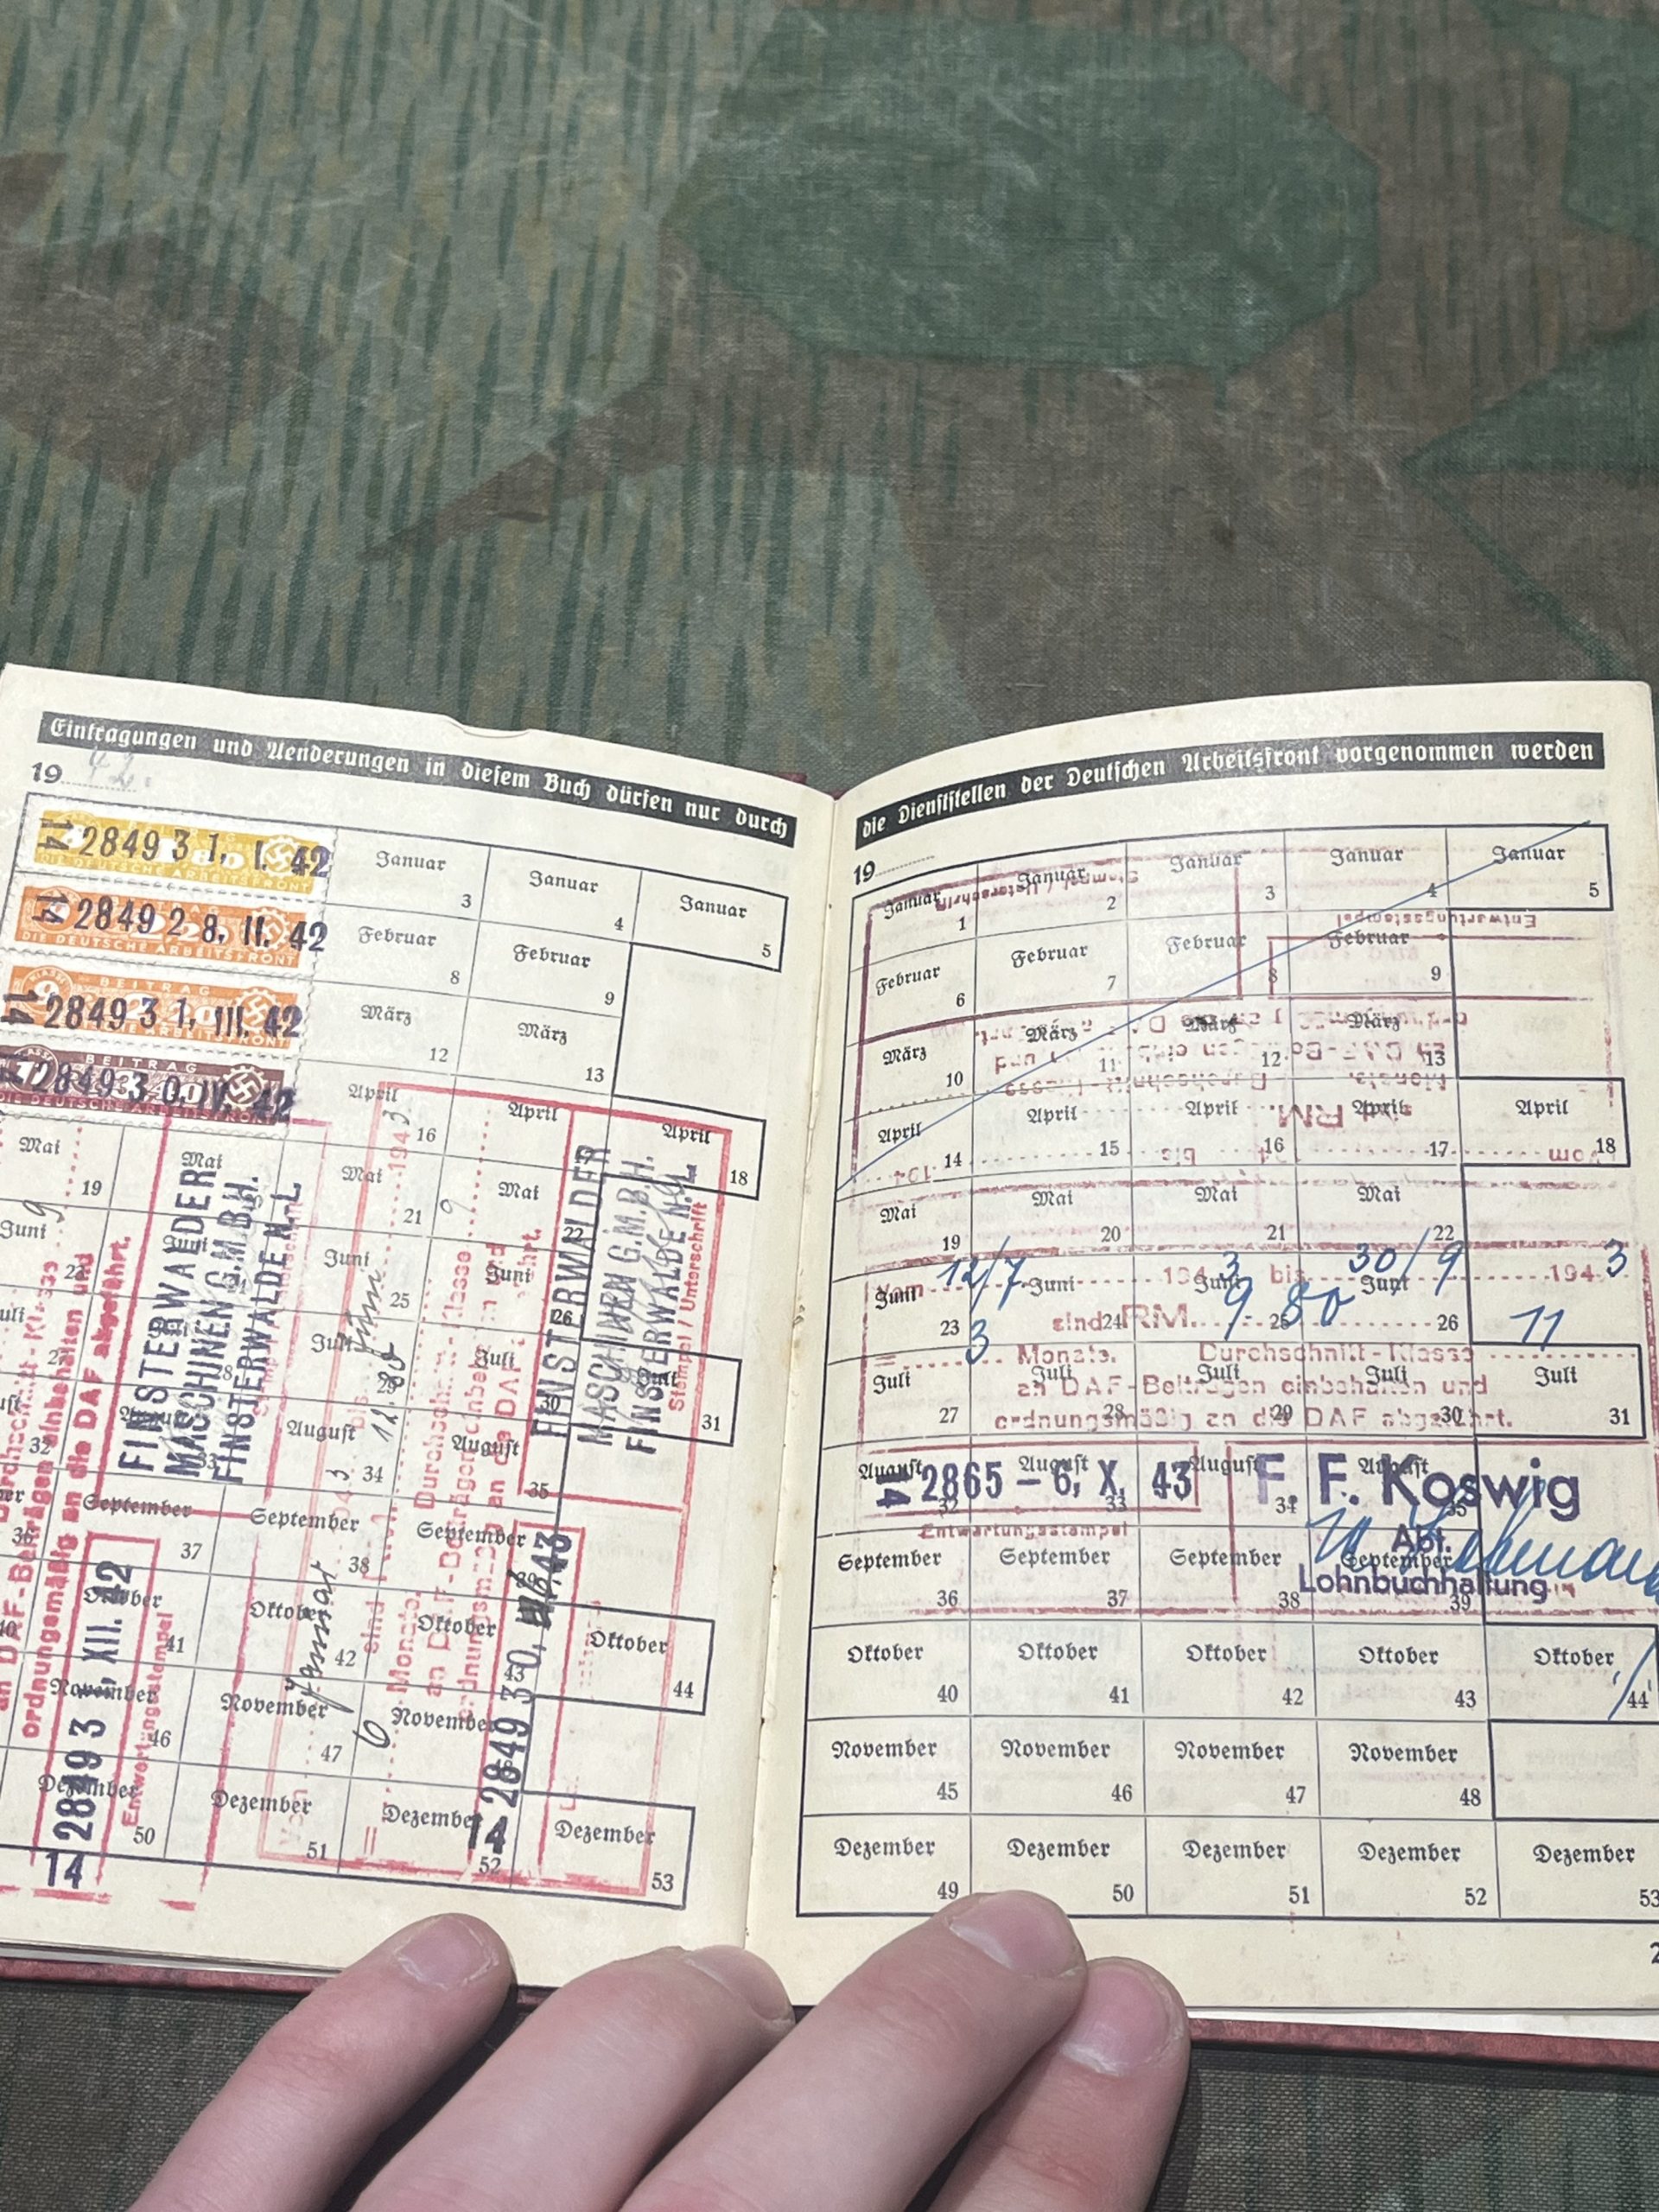 Eintragungen und Aenderungen in diesem Buch dürfen nur durch
19 42.
14 2849 31. I. 42
DIE DEUTSCHE ARBEITSFRONT
14 2849 28. II. 42
DIE DEUTSCHE ARBEITSFRONT
BEITRAG
14 2849 31. III. 42
DIE DEUTSCHE ARBEITSFRONT
BEITRAG
2849 30. IV. 42
DIE DEUTSCHE ARBEITSFRONT
Januar 3 Januar 4 Januar 5
Februar 8 Februar 9
März 12 März 13
April 16 April April 18
Mai 19 Mai Mai 21 Mai 22
Juni Juni Juni 25 Juni 26
Juli Juli 30 31
32 33 August 34 August 35
36 September 37 September 38 September
Oktober 41 Oktober 42 Oktober 43 Oktober 44
November 46 November 47 November
Dezember 50 Dezember 51 Dezember 52 Dezember 53
an DAF-Beiträgen einbehalten und
ordnungsmäßig an die DAF abgeführt.
FINSTERWALDER
MASCHINEN G.M.B.H.
FINSTERWALDE N.L.
14 2849 31. XII. 42
Entwertungsstempel
Januar 1943 bis 12. Juni 1943
sind RM
= 6 Monate. Durchschnitt-Klasse 9
an DAF-Beiträgen einbehalten und
ordnungsmäßig an die DAF abgeführt.
FINSTERWALDER
MASCHINEN G.M.B.H.
FINSTERWALDE N.L.
Stempel / Unterschrift
14 2849 30. 43
die Dienststellen der Deutschen Arbeitsfront vorgenommen werden
19
Januar 1 Januar 2 Januar 3 Januar 4 Januar 5
Februar 6 Februar 7 Februar 8 Februar 9
März 10 März 11 März 12 März 13
April 14 April 15 April 16 April 17 April 18
Mai 19 Mai 20 Mai 21 Mai 22
Juni 23 Juni 24 Juni 25 Juni 26
Juli 27 Juli 28 Juli 29 Juli 30 Juli 31
August 32 August 33 August 34 August 35
September 36 September 37 September 38 September 39
Oktober 40 Oktober 41 Oktober 42 Oktober 43 Oktober 44
November 45 November 46 November 47 November 48
Dezember 49 Dezember 50 Dezember 51 Dezember 52 Dezember 53
Stempel / Unterschrift
Entwertungsstempel
Vom 12/7 1943 bis 30/9 1943
sind RM. 9 80
= 3 Monate. Durchschnitt-Klasse 11
an DAF-Beiträgen einbehalten und
ordnungsmäßig an die DAF abgeführt.
14 2865 - 6. X. 43
Entwertungsstempel
F. F. Koswig
Abt.
Lohnbuchhaltung
2